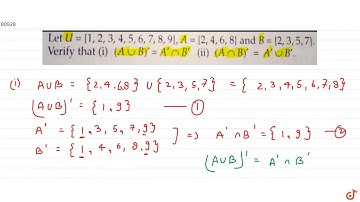 80928
Let U = {1, 2, 3, 4, 5, 6, 7, 8, 9}, A = {2, 4, 6, 8} and B = {2, 3, 5, 7}.
Verify that (i) (A ∪ B)' = A' ∩ B' (ii) (A ∩ B)' = A' ∪ B'.
(i) A∪B = {2,4,6,8} ∪ {2,3,5,7} = {2,3,4,5,6,7,8}
(A∪B)' = {1,9} — ①
A' = {1,3,5,7,9}
B' = {1,4,6,8,9} ] ⇒ A' ∩ B' = {1,9} — ②
(A∪B)' = A' ∩ B'